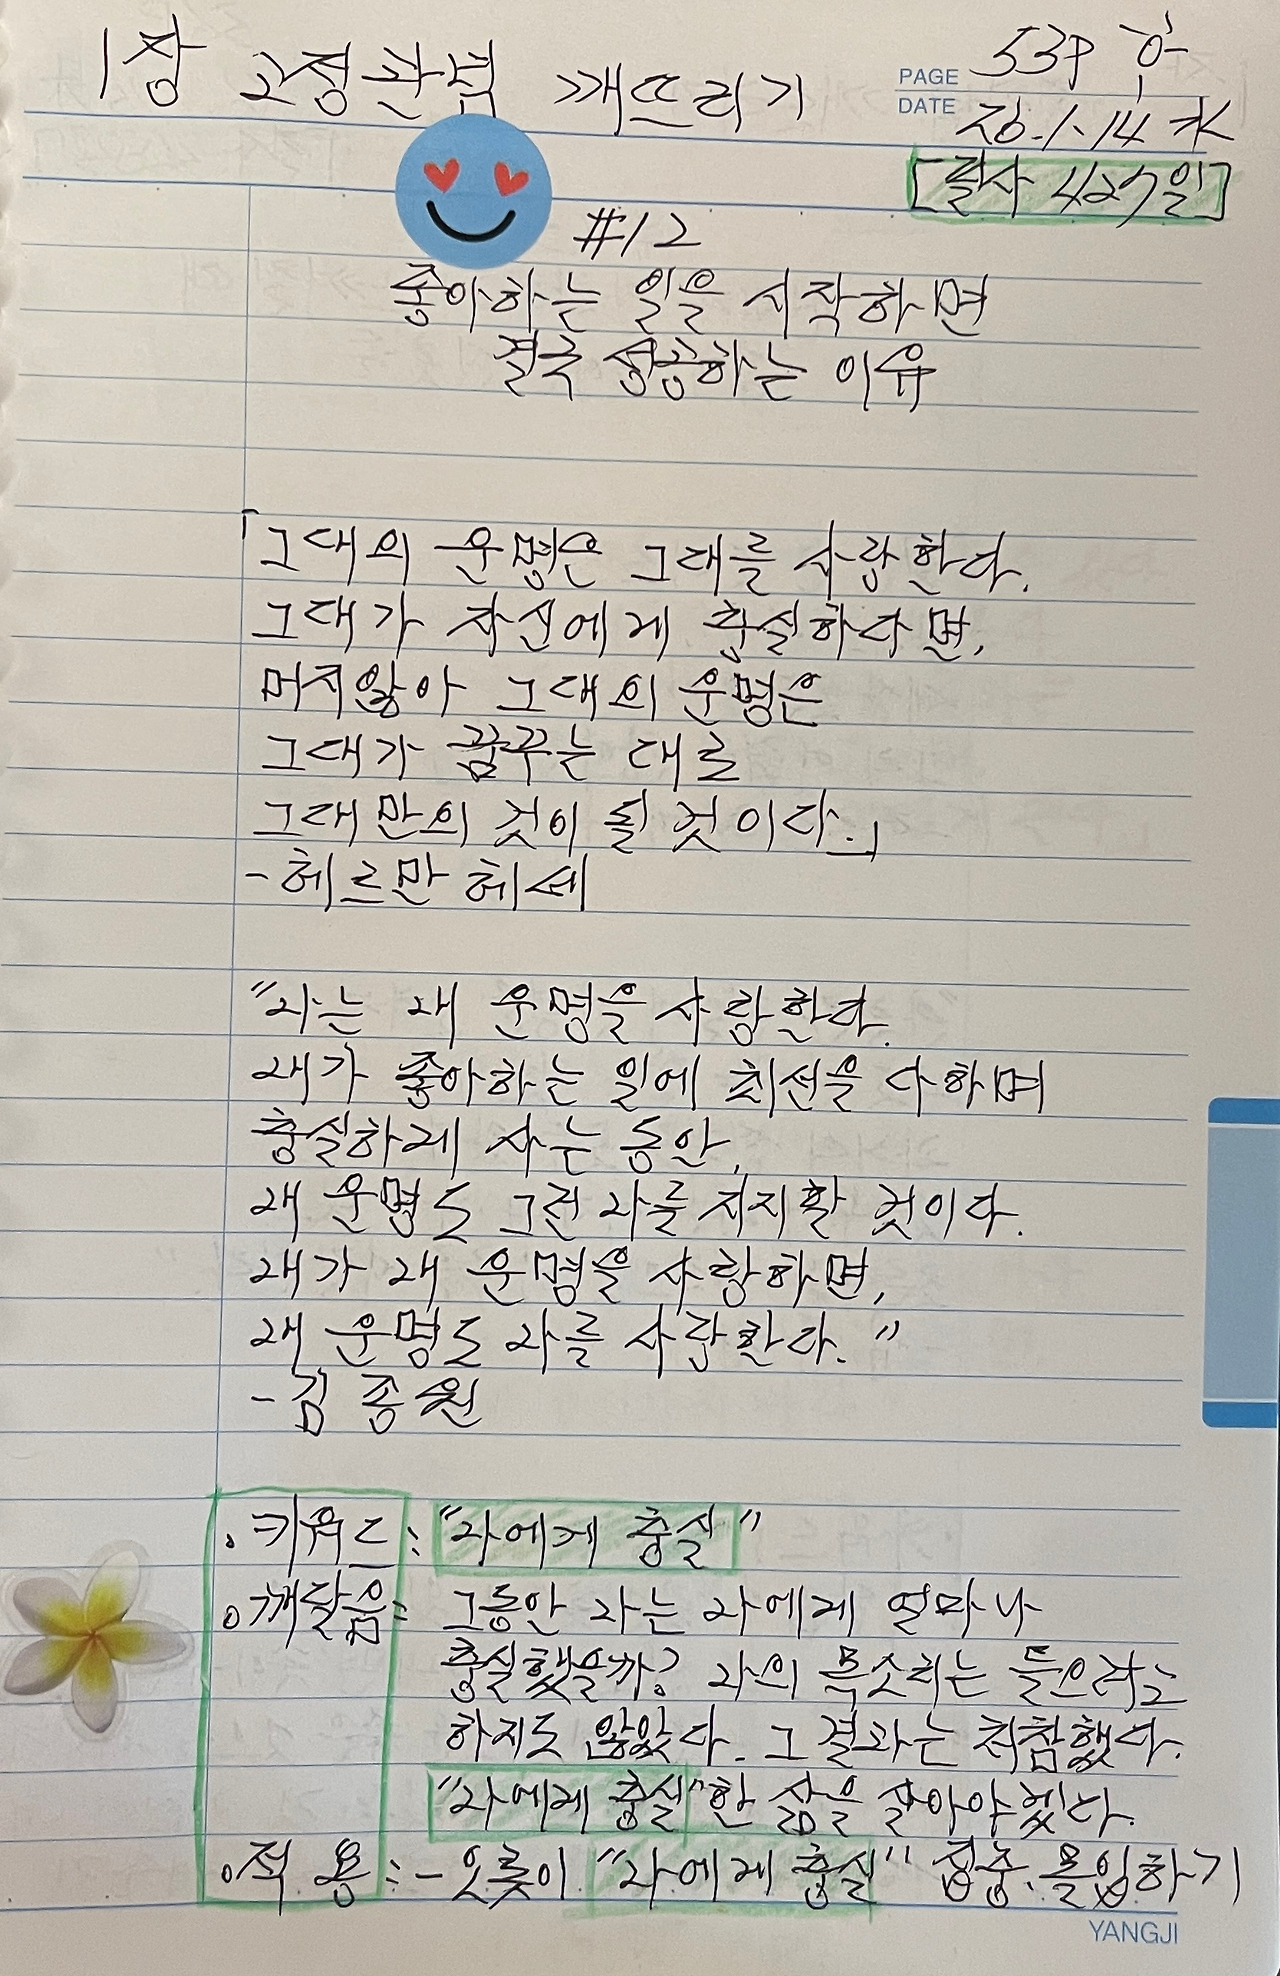 1장 고정관념 깨뜨리기
PAGE 53P 하
DATE 26.1.14 水
[필사 427일]
#12
좋아하는 일을 시작하면
결국 성공하는 이유
「그대의 운명은 그대를 사랑한다.
그대가 자신에게 충실하다면,
머지않아 그대의 운명은
그대가 꿈꾸는 대로
그대만의 것이 될 것이다.」
-헤르만 헤세
"나는 내 운명을 사랑한다.
내가 좋아하는 일에 최선을 다하며
충실하게 사는 동안,
내 운명도 그런 나를 지지할 것이다.
내가 내 운명을 사랑하면,
내 운명도 나를 사랑한다."
-김종원
•키워드: "나에게 충실"
•깨달음: 그동안 나는 나에게 얼마나
충실했을까? 나의 목소리는 들으려고
하지도 않았다. 그 결과는 처참했다.
"나에게 충실"한 삶을 살아야겠다.
•적용: -오롯이 "나에게 충실" 집중.몰입하기
YANGJI